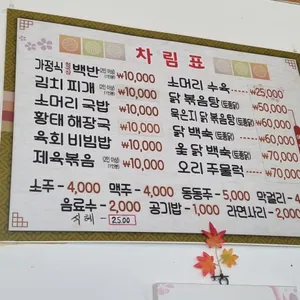 차림표
가정식 백반 ₩10,000
김치찌개 ₩10,000
소머리국밥 ₩10,000
황태해장국 ₩10,000
육회비빔밥 ₩10,000
제육볶음 ₩10,000
소머리 수육 ₩25,000
닭볶음탕 (토종닭) ₩50,000
묵은지 닭볶음탕 (토종닭) ₩60,000
닭백숙 (토종닭) ₩60,000
옻닭백숙 (토종닭) ₩70,000
오리주물럭 ₩70,000
소주 - 4,000 맥주 - 4,000 동동주 - 5,000 막걸리 - 4
음료수 - 2,000 공기밥 - 1,000 라면사리 - 2,00
식혜 - 2500